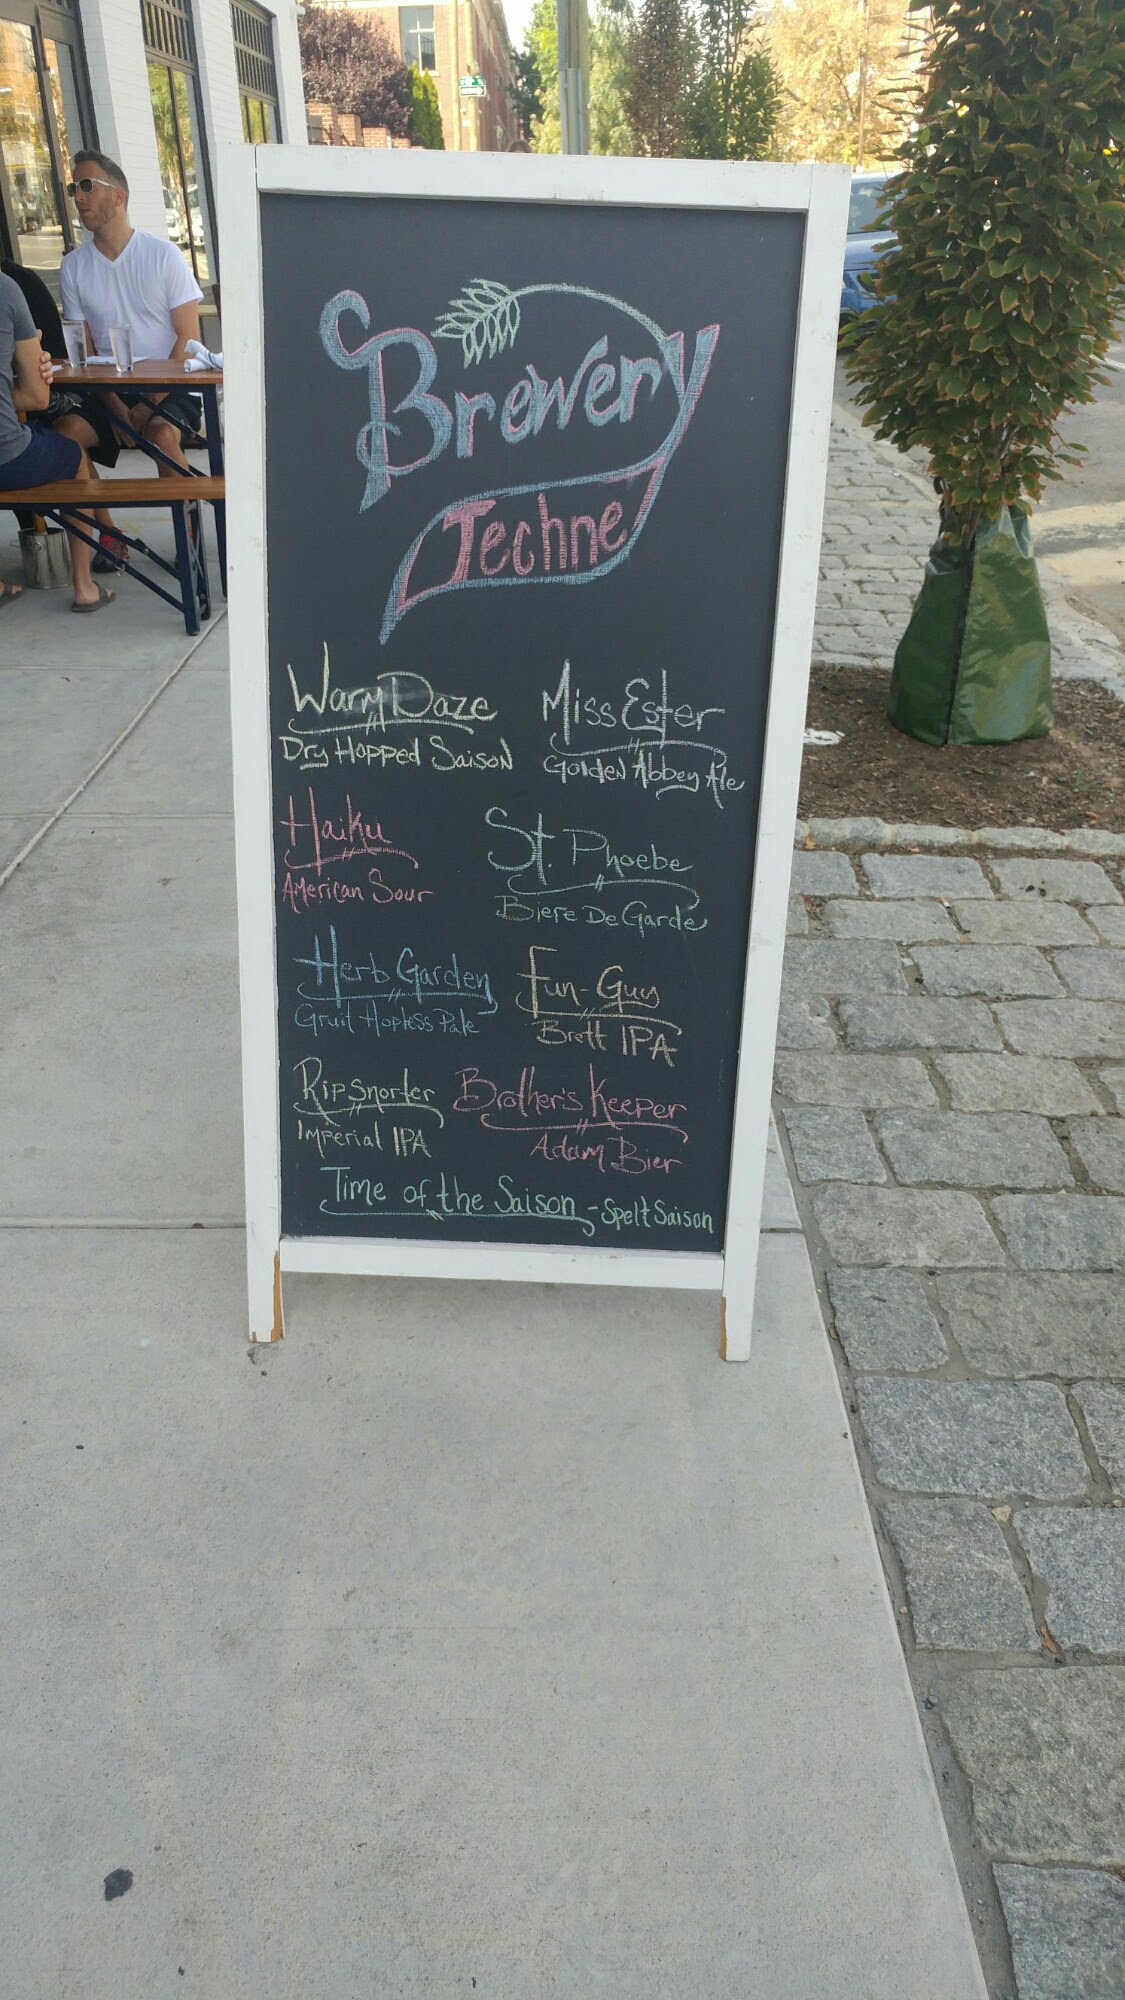 Brewery
Techne
Warm Daze
Dry Hopped Saison
Miss Ester
Golden Abbey Ale
Haiku
American Sour
St. Phoebe
Biere De Garde
Herb Garden
Gruit Hopless Pale
Fun-Guy
Brett IPA
Ripsnorter
Imperial IPA
Brother's Keeper
Adam Bier
Time of the Saison - Spelt Saison